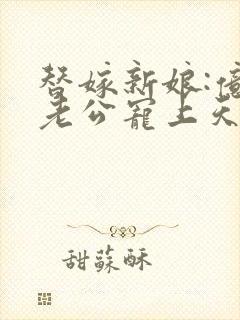 替嫁新娘:億
老公寵上天
甜蘇酥